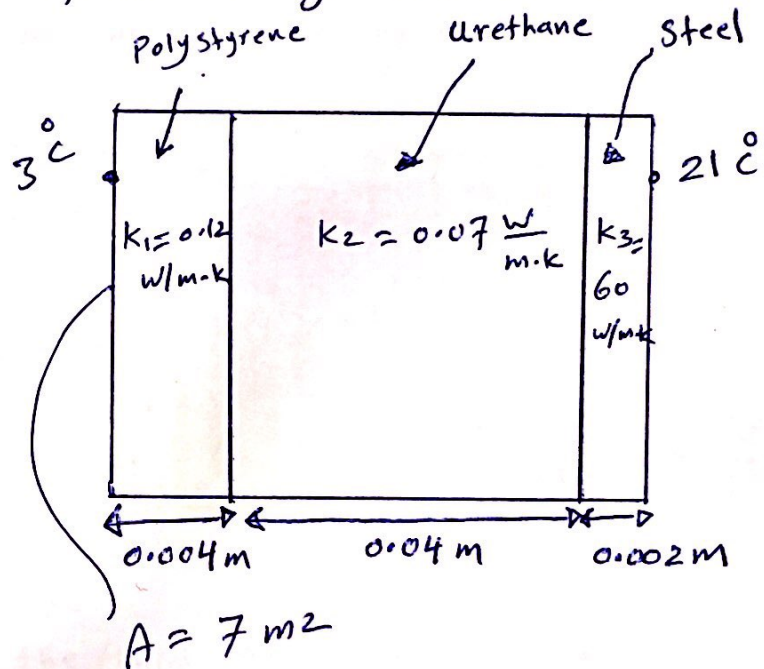 Polystyrene
urethane
Steel
3°C
21°C
K1= 0.12
W/m·k
K2 = 0.07 W/m·k
K3=
60
W/mk
0.004m
0.04m
0.002m
A= 7 m2